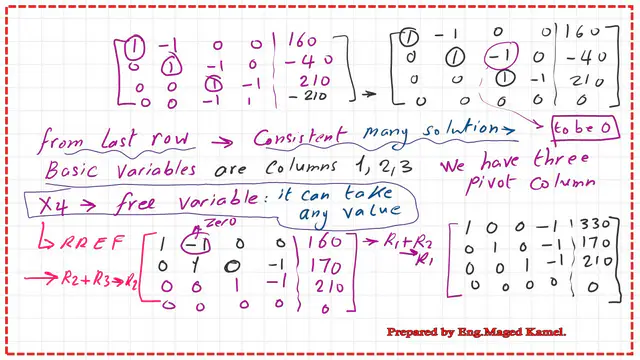 1 -1 0 0 | 160    1 -1 0 0 | 160
0 1 -1 0 | -40    0 1 -1 0 | -40
0 0 1 -1 | 210    0 0 1 -1 | 210
0 0 -1 1 | -210 → 0 0 0 0 | 0
from Last row → Consistent many solution → to be 0
Basic Variables are Columns 1, 2, 3 We have three
pivot Column
X4 → free variable: it can take
any value
zero
↳ RREF 1 -1 0 0 | 160 → R1 + R2 → R1 1 0 0 -1 | 330
0 1 0 -1 | 170    0 1 0 -1 | 170
→ R2 + R3 → R2 0 0 1 -1 | 210    0 0 1 -1 | 210
0 0 0 0 | 0    0 0 0 0 | 0
Prepared by Eng.Maged Kamel.